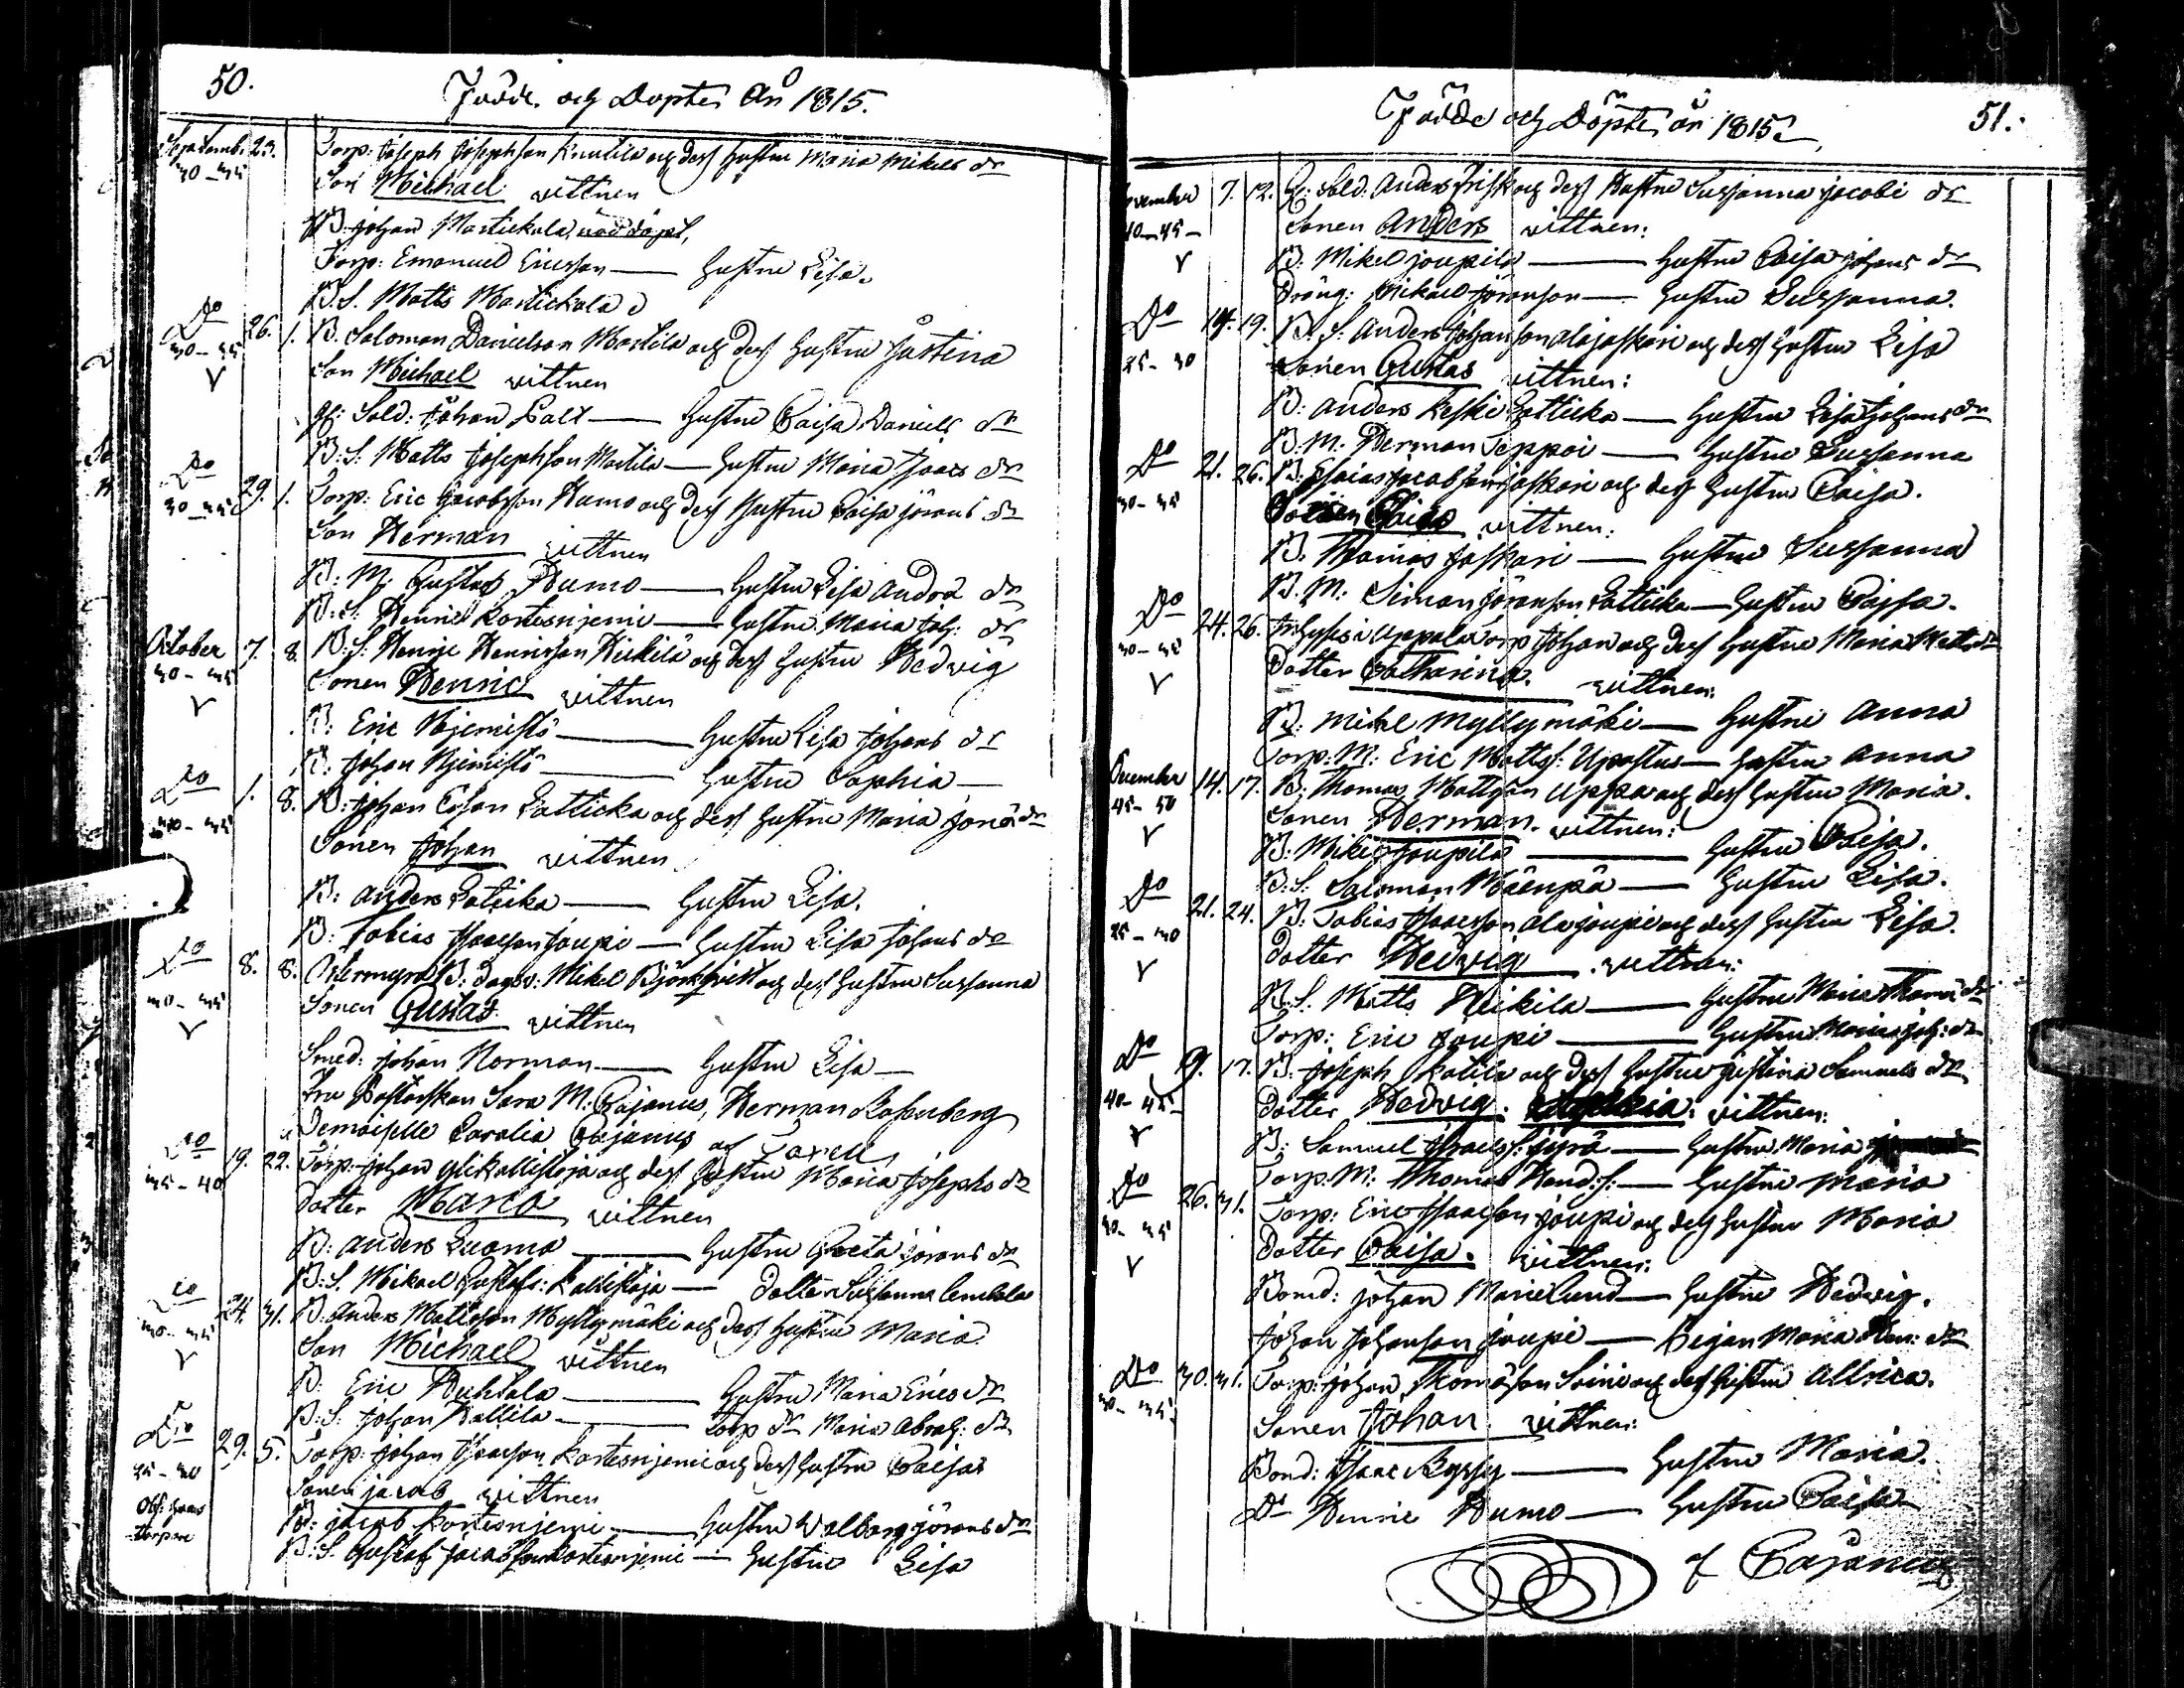 50.
Födde och Döpte År 1815.
Septemb. 23.
30-35
Torp: Joseph Josephson Knutila och dess Hustru Maria Mikels dr
Son Michael vittnen
B: Johan Martickala, nöddöpt,
Torp: Emanuel Ericsson — Hustru Lisa.
B.S. Matts Martickala
Do 26. 1.
30-35
B. Salomon Danielson Martila och dess Hustru Justina
Son Michael vittnen
gl: Sold: Johan Palt — Hustru Caisa Daniels dr
B:S: Matts Josephson Martila — Hustru Maria Isacs dr
Do 29. 1.
30-35
Torp: Eric Jacobsson Humo och dess Hustru Caisa Jörans dr
Son Herman vittnen
B: M: Gustaf Humo — Hustru Lisa Andrä dr
B:S: Henric Kortesnjemi — Hustru Maria Joh: dr
October 7. 8.
30-35
B:S: Henric Henricson Heikilä och dess Hustru Hedvig
Sonen Henric vittnen
B: Eric Njemistö — Hustru Lisa Johans dr
B: Johan Njemistö — Hustru Sophia —
Do 1. 8.
B: Johan Esson Latticka och dess Hustru Maria Jonä dr
Sonen Johan vittnen
B: Anders Laticka — Hustru Lisa.
B: Tobias Isacson Joupi — Hustru Lisa Johans dr
Do 8. 8.
30-35
Östermyra B: Mikel Björkqvist och dess Hustru Susanna
Sonen Gustaf vittnen
Smed: Johan Norman — Hustru Lisa —
Fru Pastorskan Sara M. Cajanus, Herman Rosenberg
Demoiselle Carolia Cajanus
Do 19. 22.
35-40
Torp: Johan Ylikallistoja och dess Hustru Maria Josephs dr
Dotter Maria vittnen
B: Anders Luoma — Hustru Greta Jörans dr
B:S. Mikael Gustafs: Kallistoja — Dotter Susanna Lemkola
Do 24. 31.
30-35
B. Anders Mattsson Myllymäki och dess Hustru Maria
Son Michael vittnen
B: Eric Ruhtala — Hustru Maria Erics dr
B:S: Johan Kallila — Torp dr Maria Abrah: dr
Do 29. 5.
25-30
Torp: Johan Isacson Kortesnjemi och dess Hustru Caisa
Sonen Jacob vittnen
B: Jacob Kortesnjemi — Hustru Walborg Jörans dr
B:S. Gustaf Jacobson Kortesnjemi — Hustru Lisa
Födde och Döpte år 1815.
51.
November 7. 12.
40-45-
gl: Sold: Anders Frisk och dess Hustru Susanna Jacobi dr
Sonen Anders vittnen:
B: Mikel Joupila — Hustru Caisa Johans dr
Dräng: Mikael Jöranson — Hustru Susanna.
Do 14. 19.
25-30
B: S: Anders Johanson Alajaskari och dess Hustru Lisa
Sonen Gustaf vittnen:
B: Anders Keski Latticka — Hustru Lisa Johans dr
B: M: Herman Seppoi — Hustru Susanna
Do 21. 26.
30-35
B: Esaias Jacobson Jaskari och dess Hustru Caisa.
vittnen:
B. Thomas Jaskari — Hustru Susanna
B. M. Simon Jöranson Latticka — Hustru Caisa.
Do 24. 26.
30-35
Inhyses i Uppala Johan och dess Hustru Maria Matts dr
Dotter Catharina. vittnen:
B: Mikel Myllymäki — Hustru Anna
Torp: M: Eric Mattss: Upastus — Hustru Anna
December 14. 17.
45-50
B: Thomas Mattson Uppa och dess Hustru Maria.
Sonen Herman. vittnen:
B: Mikel Joupila — Hustru Caisa.
B: S: Salomon Mäenpä — Hustru Lisa.
Do 21. 24.
25-30
B: Tobias Isacsson Alajoupi och dess Hustru Lisa.
Dotter Hedvig. vittnen:
B. S. Matts Heikila — Hustru Maria Thomä dr
Torp: Eric Joupi — Hustru Maria Joh: dr
Do 9. 17.
40-45-
B: Joseph Katila och dess Hustru Justina Samuels dr
Dotter Hedvig. vittnen:
B: Samuel Israels: Jyrä — Hustru Maria
Torp: M: Thomas Hend: s: — Hustru Maria
Do 26. 31.
30-35
Torp: Eric Isacson Joupi och dess Hustru Maria
Dotter Caisa. vittnen:
Bond: Johan Marielund — Hustru Hedvig.
Johan Johanson Joupi — Pigan Maria dr
Do 30. 31.
30-35
Torp: Johan Thomäson Soini och dess Hustru Allrica.
Sonen Johan vittnen:
Bond: Isaac Ryssy — Hustru Maria.
Do Henric Humo — Hustru Caisa
Cajanus